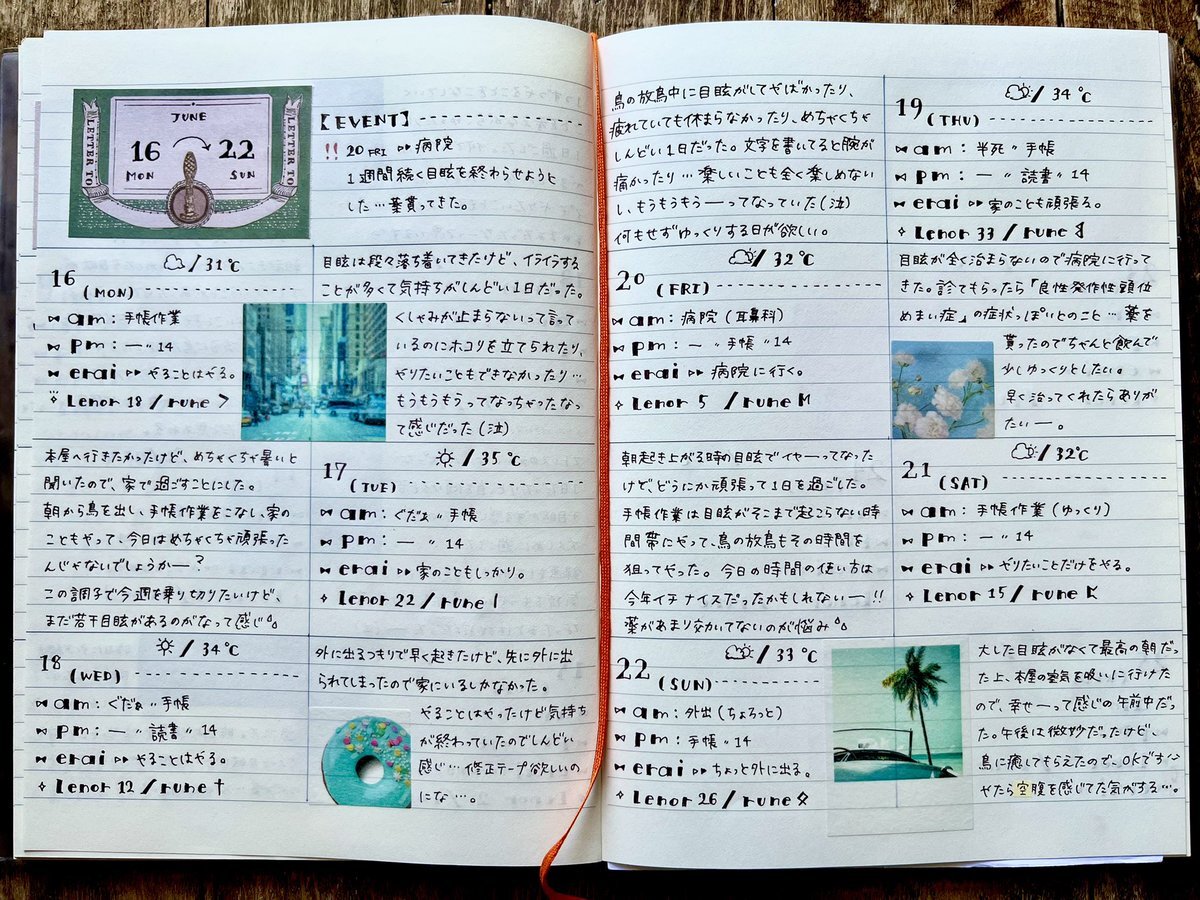 LETTER TO
JUNE
16 22
MON SUN
LETTER TO
【EVENT】
!! 20 FRI ▷▷ 病院
1週間続く目眩を終わらせようと
した…薬貰ってきた。
16 (MON) / 31℃
⋈ am : 手帳作業
⋈ pm : ー 〃 14
⋈ erai ▷▷ やることはやる。
✧ Lenor 18 / rune >
目眩は段々落ち着いてきたけど、イライラする
ことが多くて気持ちがしんどい1日だった。
くしゃみが止まらないって言って
いるのにホコリを立てられたり、
やりたいこともできなかったり…
もうもうもうってなっちゃったなっ
て感じだった(泣)
本屋へ行きたかったけど、めちゃくちゃ暑いと
聞いたので、家で過ごすことにした。
朝から鳥を出し、手帳作業をこなし、家の
こともやって、今日はめちゃくちゃ頑張った
んじゃないでしょうかー?
この調子で今週を乗り切りたいけど、
まだ若干目眩があるのがなって感じ
17 (TUE) / 35℃
⋈ am : ぐだぁ 〃 手帳
⋈ pm : ー 〃 14
⋈ erai ▷▷ 家のこともしっかり。
✧ Lenor 22 / rune |
18 (WED) / 34℃
⋈ am : ぐだぁ 〃 手帳
⋈ pm : ー 〃 読書 〃 14
⋈ erai ▷▷ やることはやる。
✧ Lenor 12 / rune †
外に出るつもりで早く起きたけど、先に外に出
られてしまったので家にいるしかなかった。
やることはやったけど気持ち
が終わっていたのでしんどい
感じ…修正テープ欲しいの
にな…。
鳥の放鳥中に目眩がしてやばかったり、
疲れていても休まらなかったり、めちゃくちゃ
しんどい1日だった。文字を書いてると腕が
痛かったり…楽しいことも全く楽しめない
し、もうもうもうーってなっていた(泣)
何もせずゆっくりする日が欲しい。
19 (THU) / 34℃
⋈ am : 半死 〃 手帳
⋈ pm : ー 〃 読書 〃 14
⋈ erai ▷▷ 家のことも頑張る。
✧ Lenor 33 / rune
20 (FRI) / 32℃
⋈ am : 病院(耳鼻科)
⋈ pm : ー 〃 手帳 〃 14
⋈ erai ▷▷ 病院に行く。
✧ Lenor 5 / rune M
目眩が全く治まらないので病院に行って
きた。診てもらったら「良性発作性頭位
めまい症」の症状っぽいとのこと…薬を
貰ったのでちゃんと飲んで
少しゆっくりとしたい。
早く治ってくれたらありが
たいー。
朝起き上がる時の目眩でイヤーってなった
けど、どうにか頑張って1日を過ごした。
手帳作業は目眩がそこまで起こらない時
間帯にやって、鳥の放鳥もその時間を
狙ってやった。今日の時間の使い方は
今年イチナイスだったかもしれないー!!
薬があまり効いてないのが悩み
21 (SAT) / 32℃
⋈ am : 手帳作業(ゆっくり)
⋈ pm : ー 〃 14
⋈ erai ▷▷ やりたいことだけをやる。
✧ Lenor 15 / rune
22 (SUN) / 33℃
⋈ am : 外出(ちょろっと)
⋈ pm : 手帳 〃 14
⋈ erai ▷▷ ちょっと外に出る。
✧ Lenor 26 / rune ᛟ
大した目眩がなくて最高の朝だっ
た上、本屋の空気を吸いに行けた
ので、幸せーって感じの午前中だっ
た。午後は微妙だったけど、
鳥に癒してもらえたので、OKです
やたら空腹を感じてた気がする…。